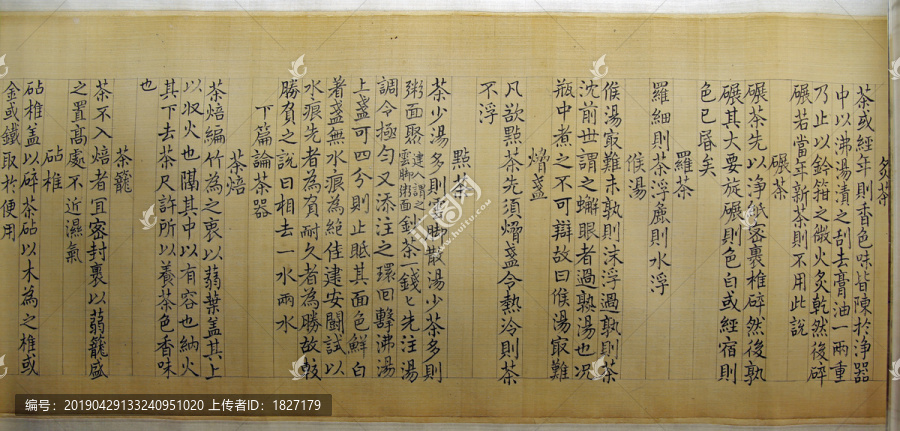 炙茶
茶或經年則香色味皆陳於淨器
中以沸湯漬之刮去膏油一兩重
乃止以鈐箝之微火炙乾然後碎
碾若當年新茶則不用此說
碾茶
碾茶先以淨紙密裹椎碎然後孰
碾其大要旋碾則色白或經宿則
色已昏矣
羅茶
羅細則茶浮麄則水浮
候湯
候湯最難未孰則沫浮過孰則茶
沈前世謂之蟹眼者過孰湯也况
瓶中煮之不可辯故曰候湯最難
熁盞
凡欲點茶先須熁盞令熱冷則茶
不浮
點茶
茶少湯多則雲脚散湯少茶多則
粥面聚建人謂之雲脚粥面鈔茶一錢匕先注湯
調令極勻又添注之環回擊沸湯
上盞可四分則止眡其面色鮮白
著盞無水痕為絕佳建安鬬試以
水痕先者為負耐久者為勝故較
勝負之說曰相去一水兩水
下篇論茶器
茶焙
茶焙編竹為之裹以蒻葉盖其上
以收火也隔其中以有容也納火
其下去茶尺許所以養茶色香味
也
茶籠
茶不入焙者宜密封裹以蒻籠盛
之置高處不近濕氣
砧椎
砧椎盖以碎茶砧以木為之椎或
金或鐵取於便用
编号：20190429133240951020 上传者ID：1827179